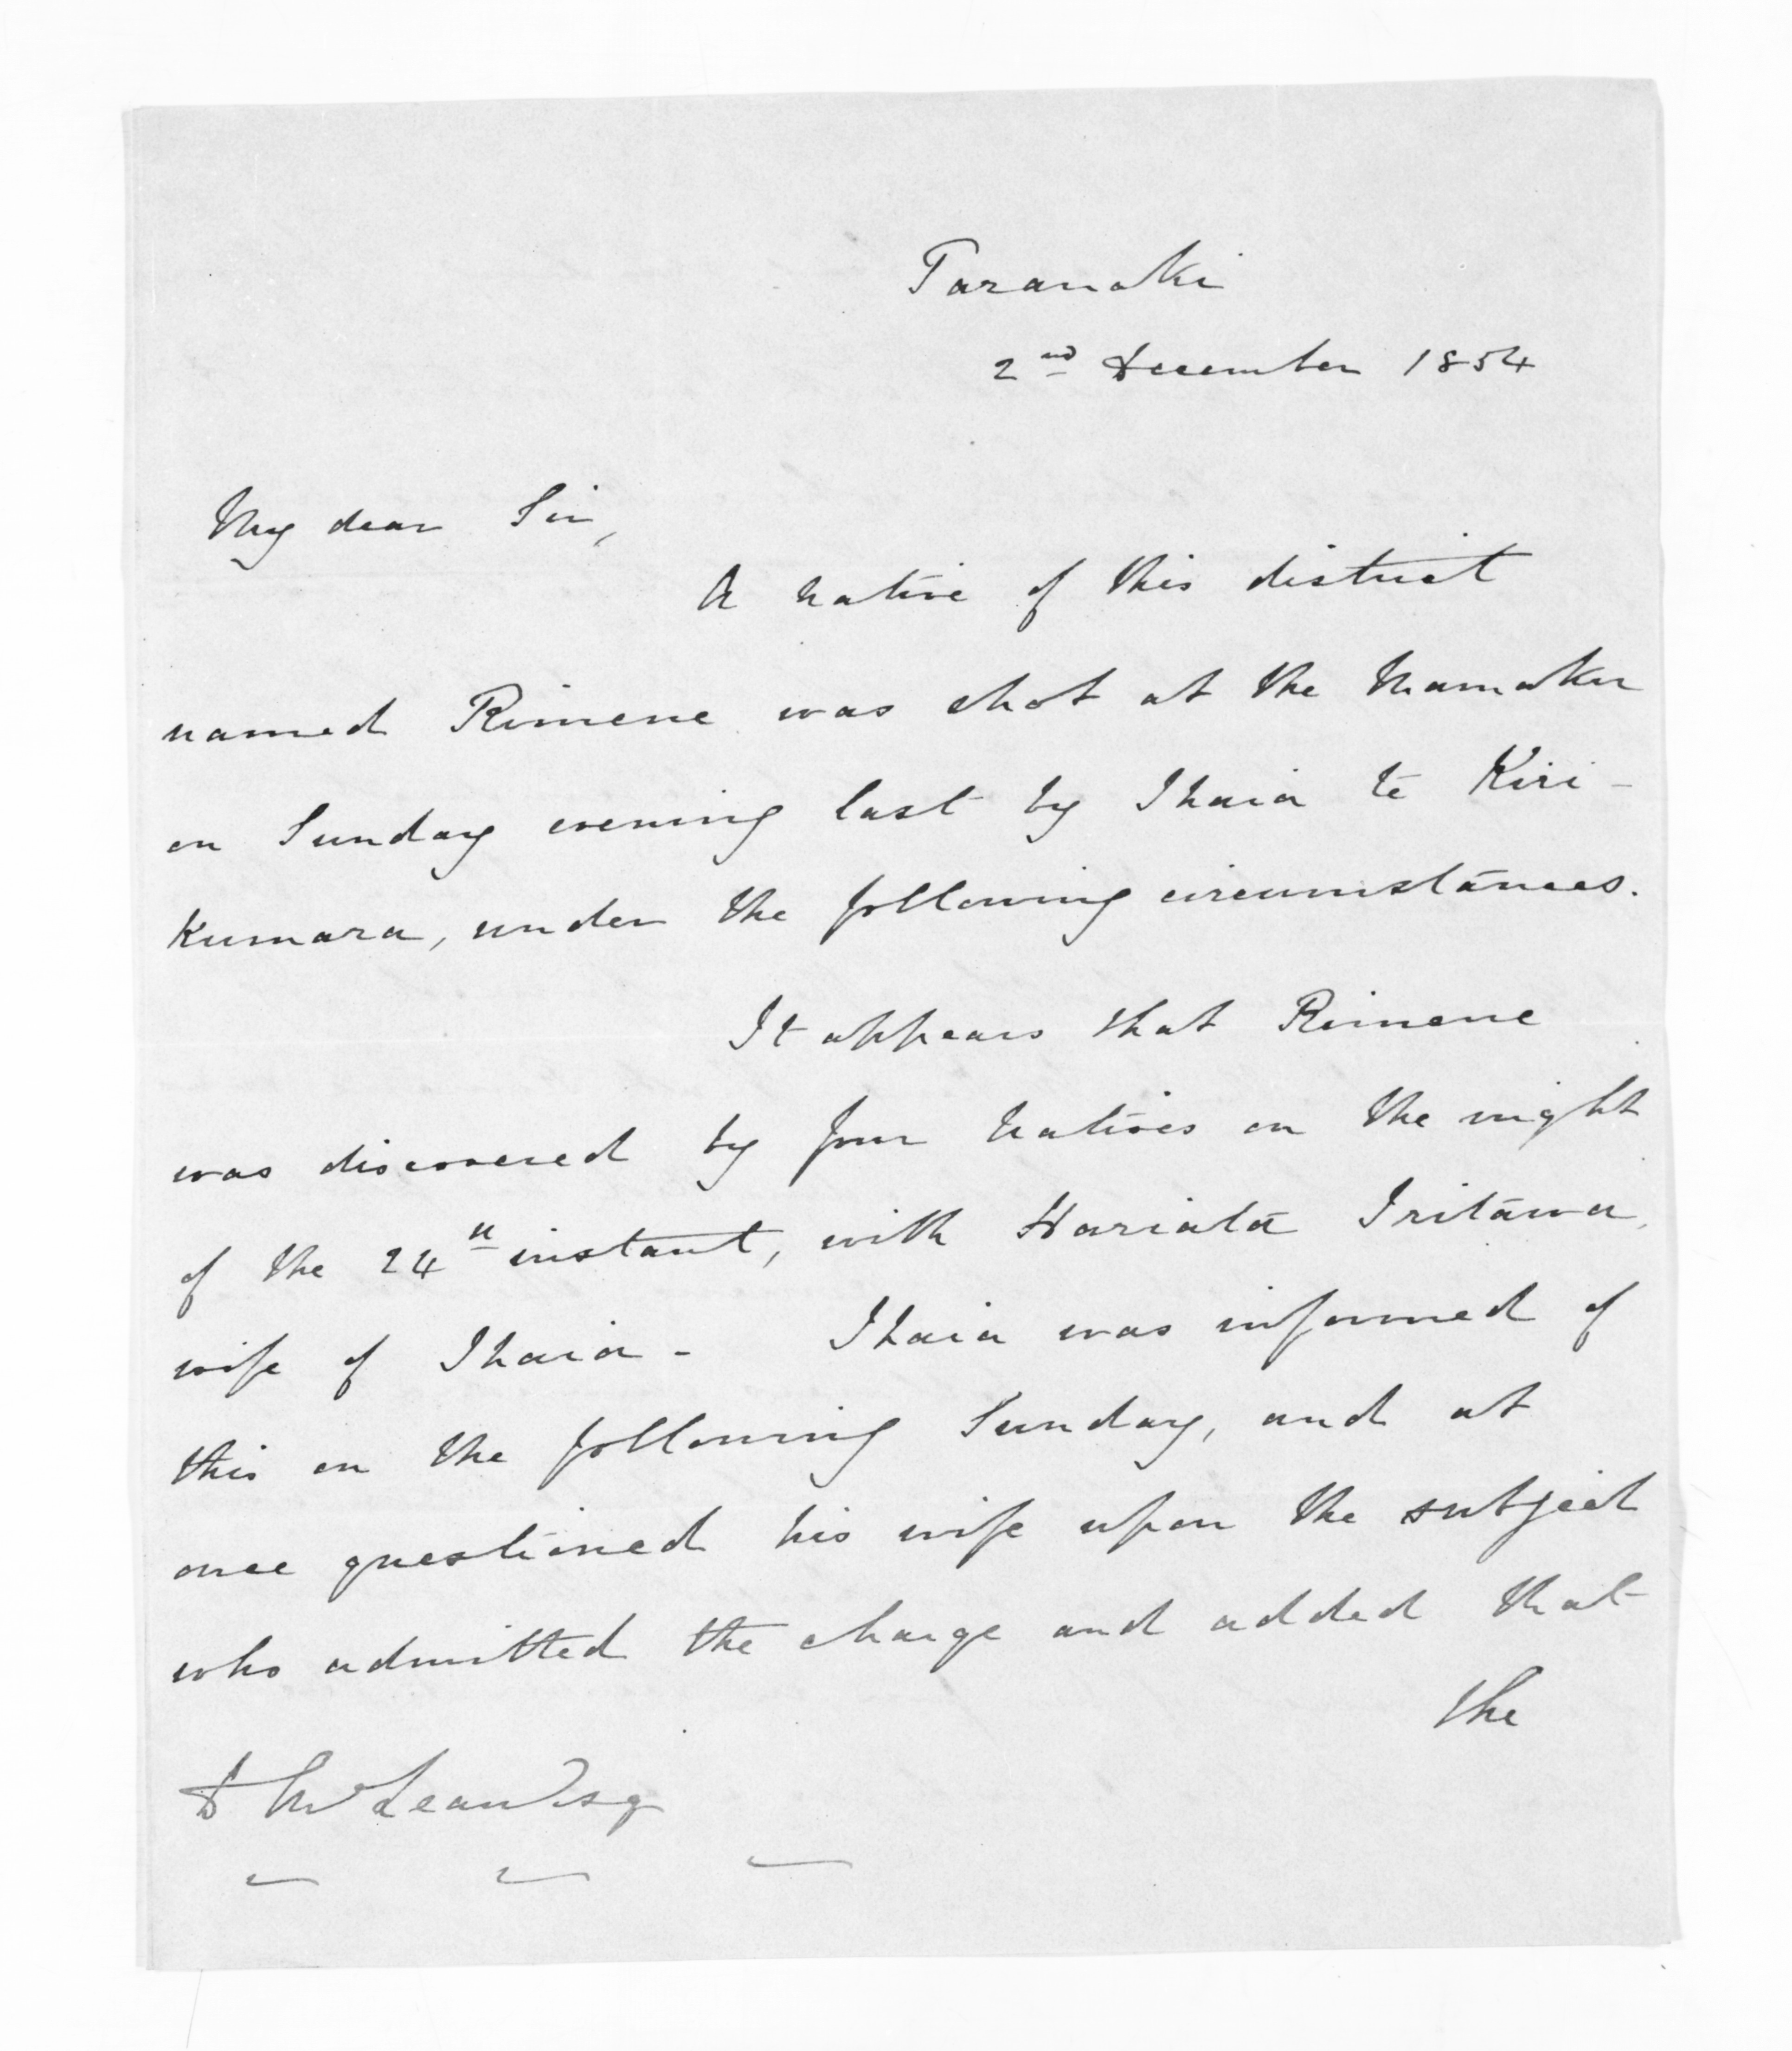 Taranaki
2nd December 1854
My dear Sir,
A native of this district
named Rimene was shot at the Mamaku
on Sunday evening last by Ihaia te Kiri-
Kumara, under the following circumstances.
It appears that Rimene
was discovered by four natives on the night
of the 24th instant, with Hariata Iritawa,
wife of Ihaia - Ihaia was informed of
this on the following Sunday, and at
once questioned his wife upon the subject
who admitted the charge and added that
the
D McLean Esq